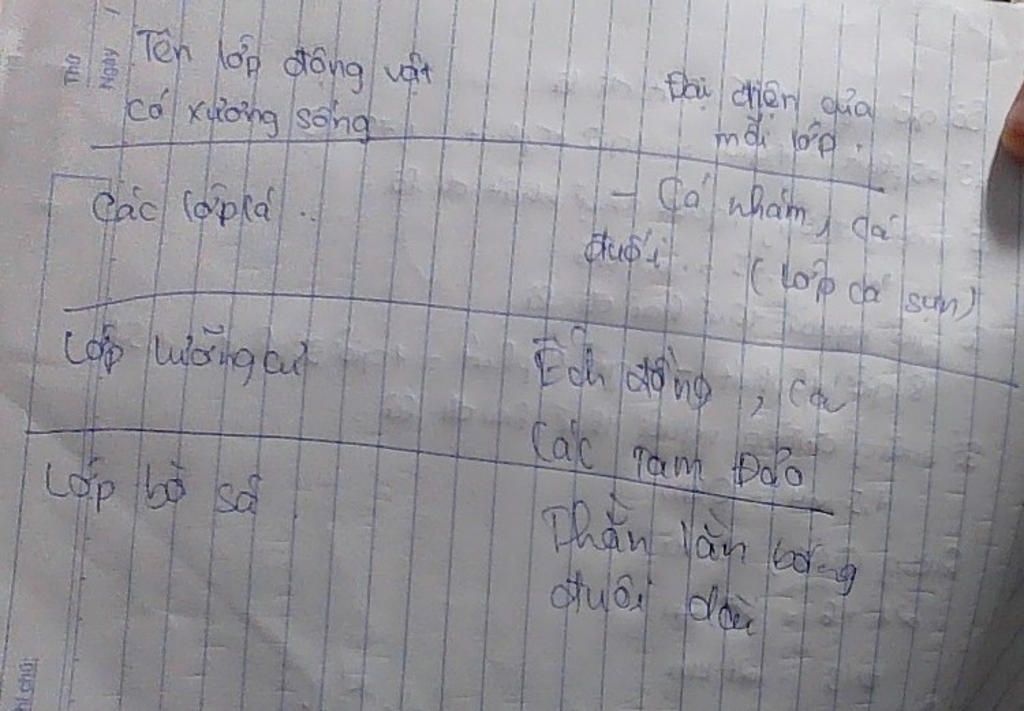 Thứ
Ngày
Tên lớp động vật
có xương sống
Đại diện của
mỗi lớp.
Các lớp cá..
- Cá nhám, cá
đuối. (lớp cá sụn)
Lớp lưỡng cư
Ếch đồng, cá
cóc Tam Đảo
Lớp bò sát
Thằn lằn bóng
đuôi dài